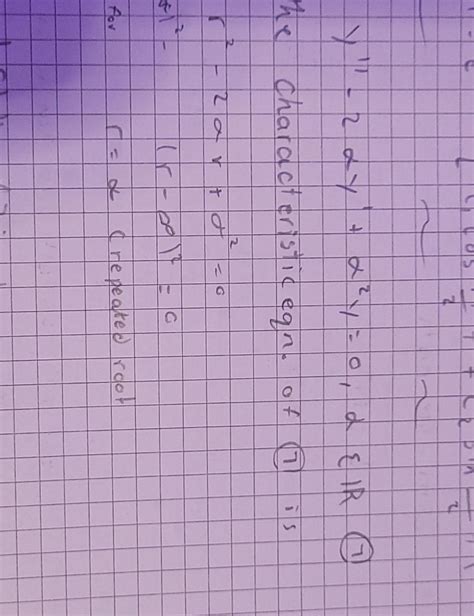 y'' - 2αy' + α²y = 0, α ∈ ℝ ⑦
he characteristic eqn. of ⑦ is
r² - 2αr + α² = 0
(r - α)² = 0
r = α (repeated root
for